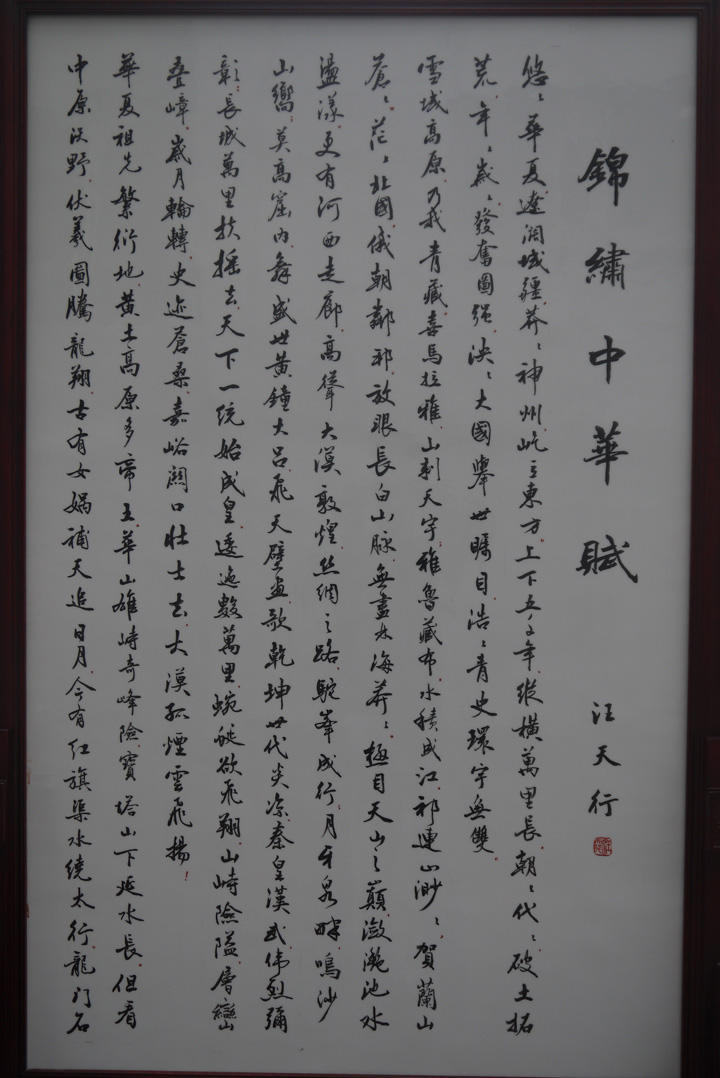 錦繡中華賦
汪天行
悠々華夏遼闊域疆莽々神州屹立東方.上下五千年縱橫萬里長.朝々代々破土拓
荒.年々歲々發奮圖强.泱々大國舉世矚目浩々青史環宇無雙.
雪域高原乃我青藏.喜馬拉雅山刺天宇.雅魯藏布水積成江.祁連山渺々.賀蘭山
蒼々.茫々北國俄朝鄰邦.放眼長白山脉無盡林海莽々.極目天山之巔瀲灧池水
盪漾.更有河西走廊.高聳大漠敦煌.絲綢之路.駝峯成行.月牙泉畔.鳴沙
山嚮.莫高窟内.舞盛世黄鐘大吕.飛天壁畫.歌乾坤世代炎凉.秦皇漢武偉烈彌
彰.長城萬里扶摇去.天下一統始成皇.逶迤數萬里.蜿蜒欲飛翔.山峙險隘.層巒
叠嶂.歲月輪轉.史迹蒼桑.嘉峪關口壯士去.大漠孤煙雲飛揚!
華夏祖先繁衍地.黄土高原多帝王.華山雄峙奇峰險.寶塔山下延水長.但看
中原沃野.伏羲圖騰龍翔.古有女媧補天追日月.今有红旗渠水繞太行.龍门石